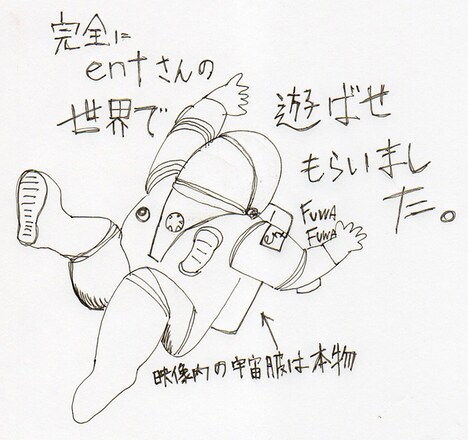 完全に
entさんの
世界で
遊ばせ
もらいまし
た。
FUWA
FUWA
映像内の宇宙服は本物